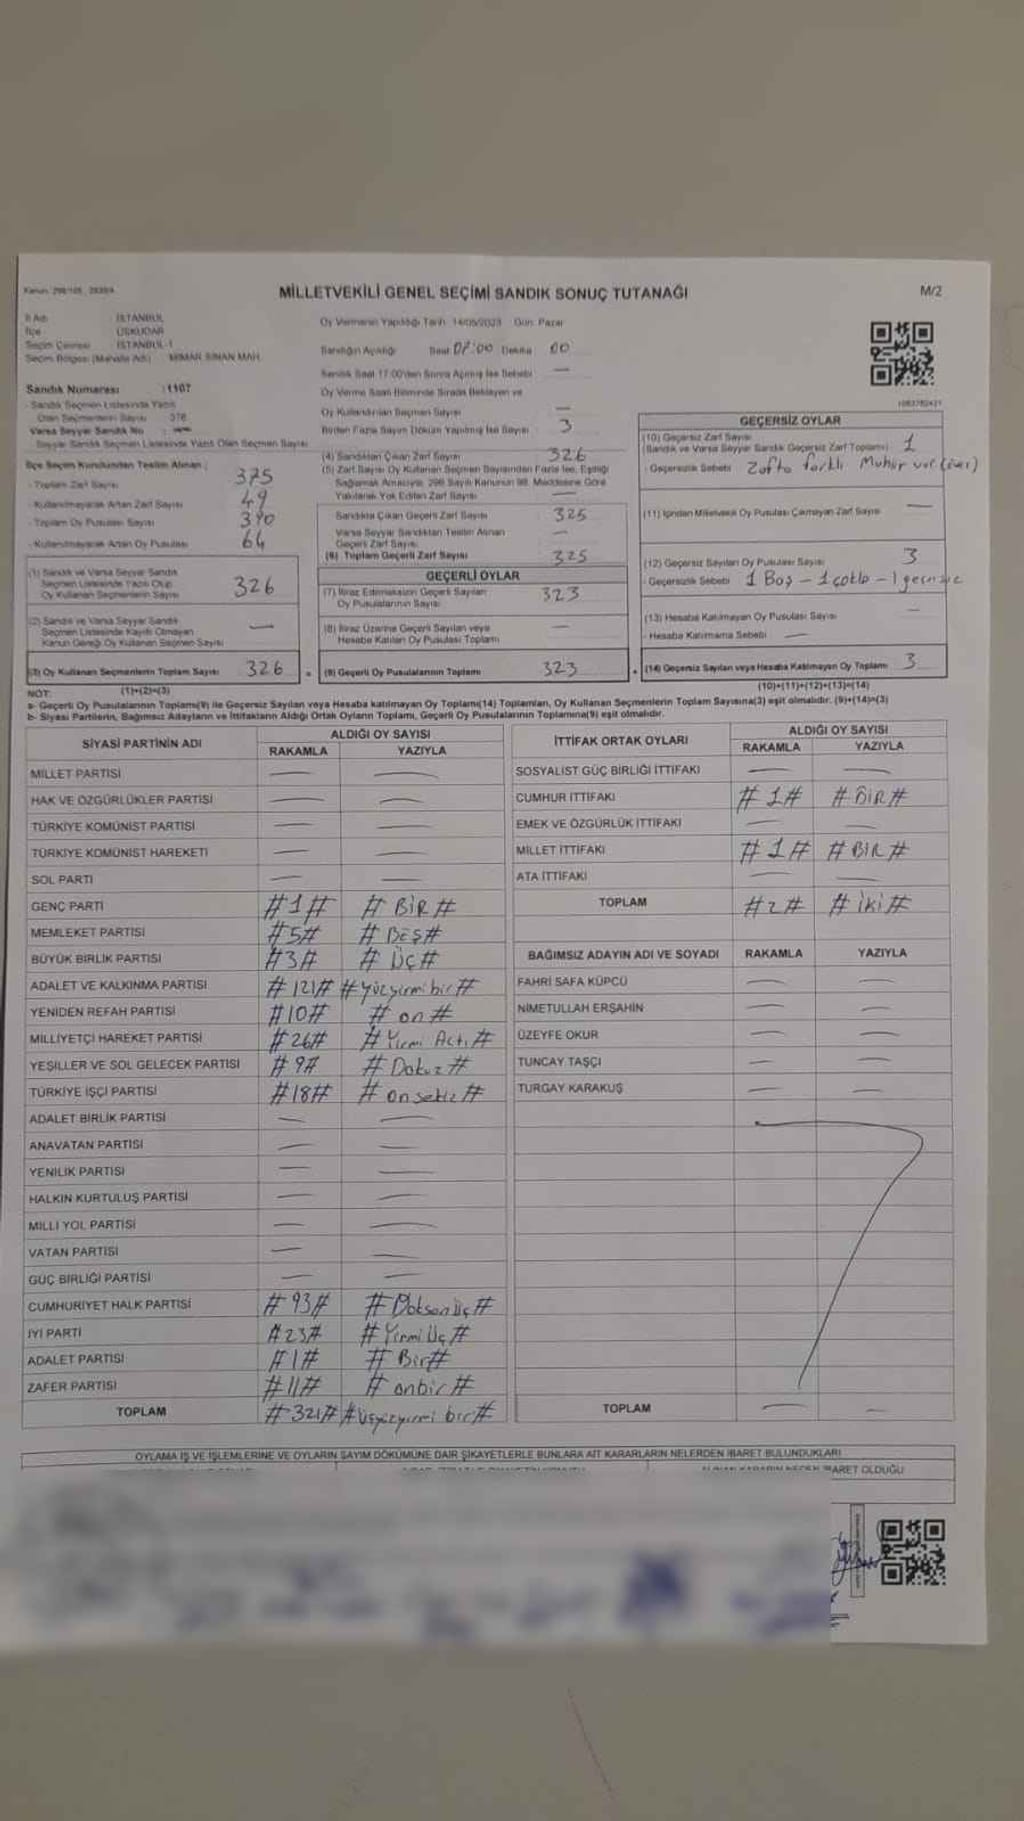 Kanun: 298/105, 2839/4
MİLLETVEKİLİ GENEL SEÇİMİ SANDIK SONUÇ TUTANAĞI
M/2
İl Adı : İSTANBUL
İlçe : ÜSKÜDAR
Seçim Çevresi : İSTANBUL-1
Seçim Bölgesi (Mahalle Adı) : MİMAR SİNAN MAH.
Sandık Numarası : 1107
- Sandık Seçmen Listesinde Yazılı
Olan Seçmenlerin Sayısı : 378
Varsa Seyyar Sandık No : —
- Seyyar Sandık Seçmen Listesinde Yazılı Olan Seçmen Sayısı
İlçe Seçim Kurulundan Teslim Alınan ;
- Toplam Zarf Sayısı 375
- Kullanılmayarak Artan Zarf Sayısı 49
- Toplam Oy Pusulası Sayısı 390
- Kullanılmayarak Artan Oy Pusulası 64
(1) Sandık ve Varsa Seyyar Sandık
Seçmen Listesinde Yazılı Olup
Oy Kullanan Seçmenlerin Sayısı 326
(2) Sandık ve Varsa Seyyar Sandık
Seçmen Listesinde Kayıtlı Olmayan
Kanun Gereği Oy Kullanan Seçmen Sayısı —
(3) Oy Kullanan Seçmenlerin Toplam Sayısı 326
(1)+(2)=(3)
Oy Vermenin Yapıldığı Tarih: 14/05/2023 Gün: Pazar
Sandığın Açıldığı Saat 07:00 Dakika 00
Sandık Saat 17:00'den Sonra Açılmış İse Sebebi —
Oy Verme Saati Bitiminde Sırada Bekleyen ve
Oy Kullandırılan Seçmen Sayısı —
Birden Fazla Sayım Döküm Yapılmış İse Sayısı 3
(4) Sandıktan Çıkan Zarf Sayısı 326
(5) Zarf Sayısı Oy Kullanan Seçmen Sayısından Fazla İse, Eşitliği
Sağlamak Amacıyla, 298 Sayılı Kanunun 98. Maddesine Göre
Yakılarak Yok Edilen Zarf Sayısı —
Sandıkta Çıkan Geçerli Zarf Sayısı 325
Varsa Seyyar Sandıktan Teslim Alınan
Geçerli Zarf Sayısı —
(6) Toplam Geçerli Zarf Sayısı 325
GEÇERLİ OYLAR
(7) İtiraz Edilmeksizin Geçerli Sayılan
Oy Pusulalarının Sayısı 323
(8) İtiraz Üzerine Geçerli Sayılan veya
Hesaba Katılan Oy Pusulası Toplamı —
(9) Geçerli Oy Pusulalarının Toplamı 323
GEÇERSİZ OYLAR
(10) Geçersiz Zarf Sayısı
(Sandık ve Varsa Seyyar Sandık Geçersiz Zarf Toplamı) 1
- Geçersizlik Sebebi Zafta farklı Muhur var
(11) İçinden Milletvekili Oy Pusulası Çıkmayan Zarf Sayısı —
(12) Geçersiz Sayılan Oy Pusulası Sayısı 3
- Geçersizlik Sebebi 1 Boş - 1 çoklo - 1 geçersiz
(13) Hesaba Katılmayan Oy Pusulası Sayısı —
- Hesaba Katılmama Sebebi —
(14) Geçersiz Sayılan veya Hesaba Katılmayan Oy Toplamı 3
(10)+(11)+(12)+(13)=(14)
NOT:
a- Geçerli Oy Pusulalarının Toplamı(9) ile Geçersiz Sayılan veya Hesaba katılmayan Oy Toplamı(14) Toplamları, Oy Kullanan Seçmenlerin Toplam Sayısına(3) eşit olmalıdır. (9)+(14)=(3)
b- Siyasi Partilerin, Bağımsız Adayların ve İttifakların Aldığı Ortak Oyların Toplamı, Geçerli Oy Pusulalarının Toplamına(9) eşit olmalıdır.
SİYASİ PARTİNİN ADI
ALDIĞI OY SAYISI
RAKAMLA YAZIYLA
MİLLET PARTİSİ — —
HAK VE ÖZGÜRLÜKLER PARTİSİ — —
TÜRKİYE KOMÜNİST PARTİSİ — —
TÜRKİYE KOMÜNİST HAREKETİ — —
SOL PARTİ — —
GENÇ PARTİ #1# # BİR #
MEMLEKET PARTİSİ #5# # BEŞ#
BÜYÜK BİRLİK PARTİSİ #3# # ÜÇ#
ADALET VE KALKINMA PARTİSİ # 121# #Yüzyirmi bir #
YENİDEN REFAH PARTİSİ #10# # on #
MİLLİYETÇİ HAREKET PARTİSİ # 26# # Yirmi Actı #
YEŞİLLER VE SOL GELECEK PARTİSİ # 9# # Dokuz #
TÜRKİYE İŞÇİ PARTİSİ #18# # onsekiz #
ADALET BİRLİK PARTİSİ — —
ANAVATAN PARTİSİ — —
YENİLİK PARTİSİ — —
HALKIN KURTULUŞ PARTİSİ — —
MİLLİ YOL PARTİSİ — —
VATAN PARTİSİ — —
GÜÇ BİRLİĞİ PARTİSİ — —
CUMHURİYET HALK PARTİSİ # 93# # Doksan üç #
İYİ PARTİ #23# # Yirmi Üç #
ADALET PARTİSİ #1# # Bir#
ZAFER PARTİSİ #11# # onbir #
TOPLAM #321# #Üçyüzyirmi bir#
İTTİFAK ORTAK OYLARI
ALDIĞI OY SAYISI
RAKAMLA YAZIYLA
SOSYALİST GÜÇ BİRLİĞİ İTTİFAKI — —
CUMHUR İTTİFAKI # 1# # BİR #
EMEK VE ÖZGÜRLÜK İTTİFAKI — —
MİLLET İTTİFAKI # 1 # # BİR #
ATA İTTİFAKI — —
TOPLAM #2# # İKİ #
BAĞIMSIZ ADAYIN ADI VE SOYADI RAKAMLA YAZIYLA
FAHRİ SAFA KÜPCÜ — —
NİMETULLAH ERŞAHİN — —
ÜZEYFE OKUR — —
TUNCAY TAŞÇI — —
TURGAY KARAKUŞ — —
TOPLAM — —
OYLAMA İŞ VE İŞLEMLERİNE VE OYLARIN SAYIM DÖKÜMÜNE DAİR ŞİKAYETLERLE BUNLARA AİT KARARLARIN NELERDEN İBARET BULUNDUKLARI